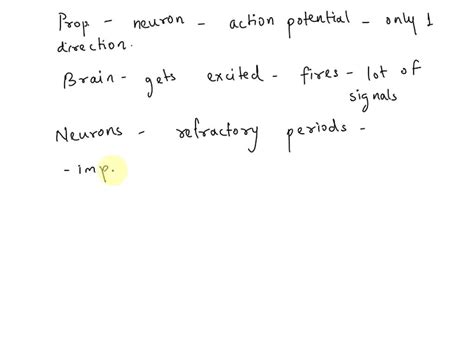 Prop - neuron - action potential - only 1
direction.
Brain - gets excited - fires - lot of
signals
Neurons - refractory periods -
- imp.